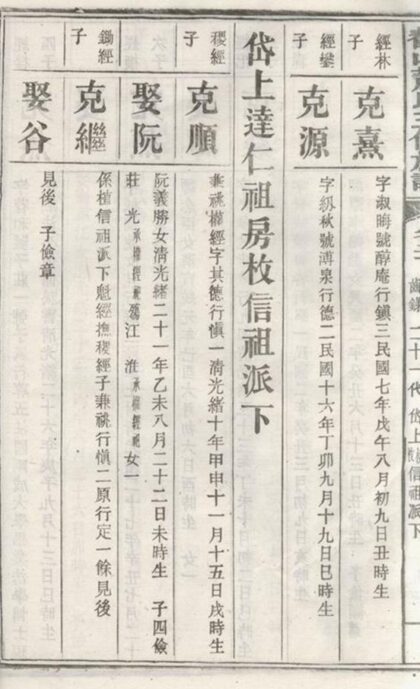 經林
子
克熹
字淑晦號醇庵行鎮三民國七年戊午八月初九日丑時生
經鑾
子
克源
字級秋號溥泉行德二民國十六年丁卯九月十九日巳時生
岱上達仁祖房枚信祖派下
稷經
子
克順
兼祧權經字其德行慎一清光緒十年甲申十一月十五日戌時生
娶阮
阮義勝女清光緒二十一年乙未八月二十二日未時生 子四儉
莊 光承權經祧 江 淮承權經祧 女一
鋤經
子
克繼
係植信祖派下魁經撫稷經子兼祧行慎二原行定一餘見後
娶谷
見後 子儉章
二十一代 岱上 信祖派下